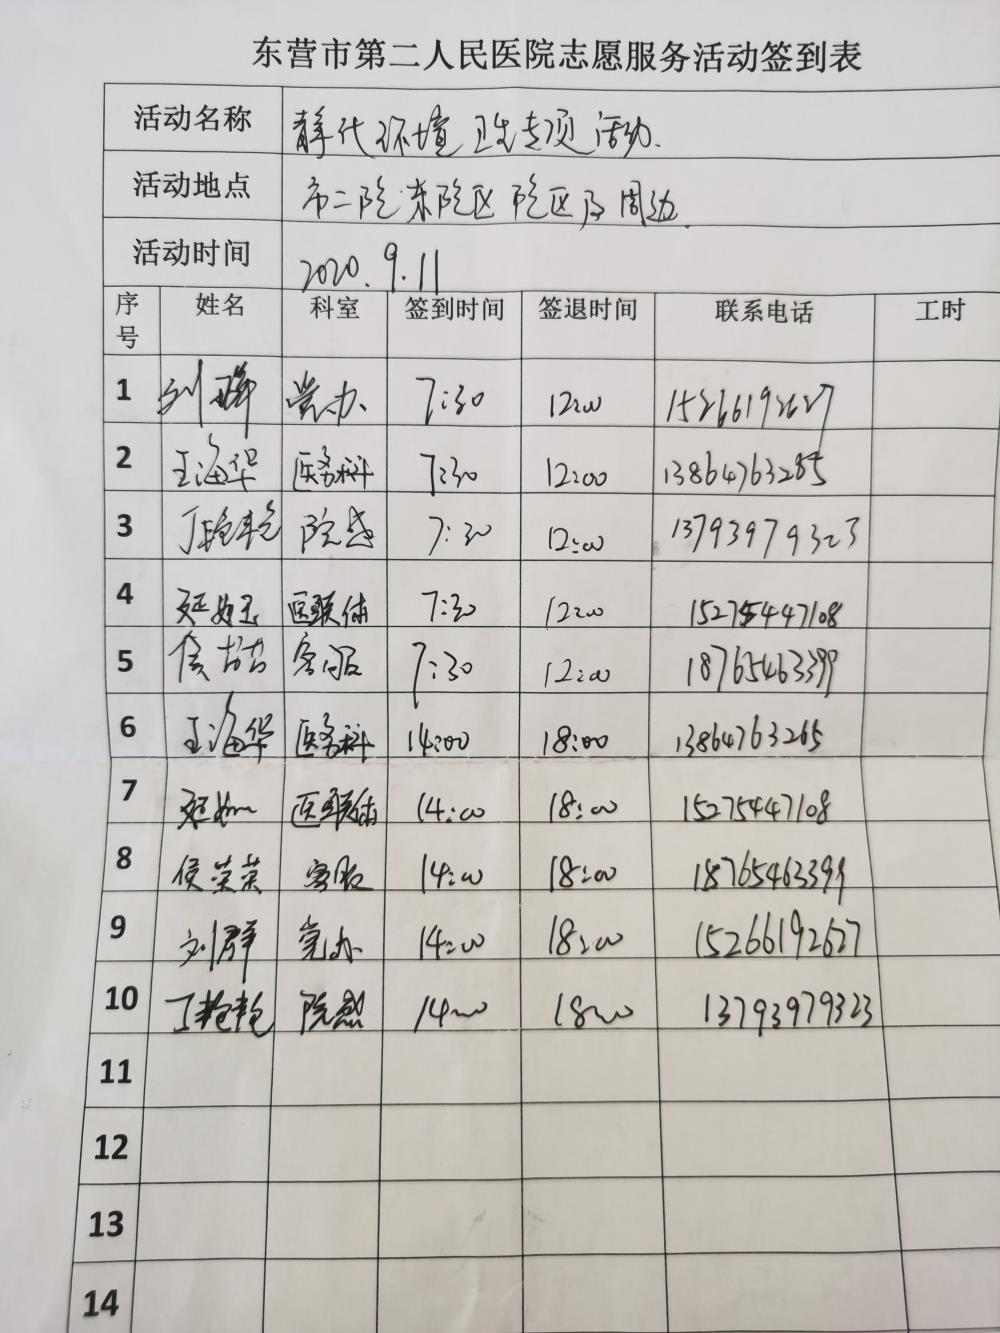 东营市第二人民医院志愿服务活动签到表
活动名称 环境卫生专项活动.
活动地点 市二院东院区院区及周边.
活动时间 2020.9.11
序号 姓名 科室 签到时间 签退时间 联系电话 工时
1 刘群 党办 7:30 12:00 15266192627
2 王海华 医务科 7:30 12:00 13864763265
3 丁艳艳 院感 7:30 12:00 13793979323
4 医联体 7:30 12:00 15275447108
5 侯 客服 7:30 12:00 18765463399
6 王海华 医务科 14:00 18:00 13864763265
7 医联体 14:00 18:00 15275447108
8 侯荣荣 客服 14:00 18:00 18765463399
9 刘群 党办 14:00 18:00 15266192627
10 丁艳艳 院感 14:00 18:00 13793979323
11
12
13
14